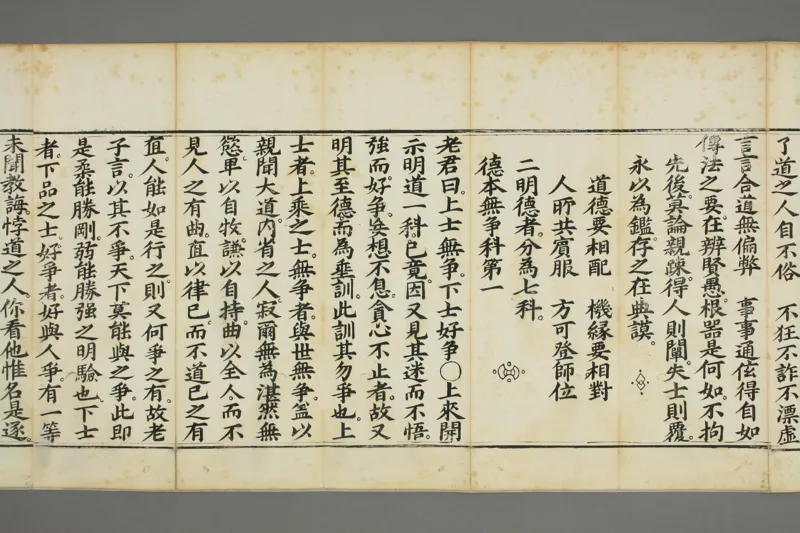 了道之人自不俗　不狂不詐不漂虛
言言合道無偏弊　事事通玄得自如
傳法之要。在辨賢愚。根器是何如。不拘
先後。莫論親踈。得人則闡。失士則覆。
永以為鑑。存之在典謨。
道德要相配　機緣要相對
人所共賓服　方可登師位
二明德者。分為七科。
德本無爭科第一
老君曰。上士無爭。下士好爭〇上來開
示明道一科。已竟。因又見其迷而不悟。
強而好爭。妄想不息。貪心不止者。故又
明其至德。而為垂訓。此訓其勿爭也。上
士者。上乘之士。無爭者。與世無爭。盖以
親聞大道。内省之人。寂爾無為。湛然無
慾。卑以自牧。謙以自持。曲以全人。而不
見人之有曲。直以律己。而不道己之有
直。人能如是行之。則又何爭之有。故老
子言。以其不爭。天下莫能與之爭。此即
是柔能勝剛。弱能勝強之明驗也。下士
者。下品之士。好爭者。好與人爭。有一等
未聞教誨。悖道之人。你看他惟名是逐。